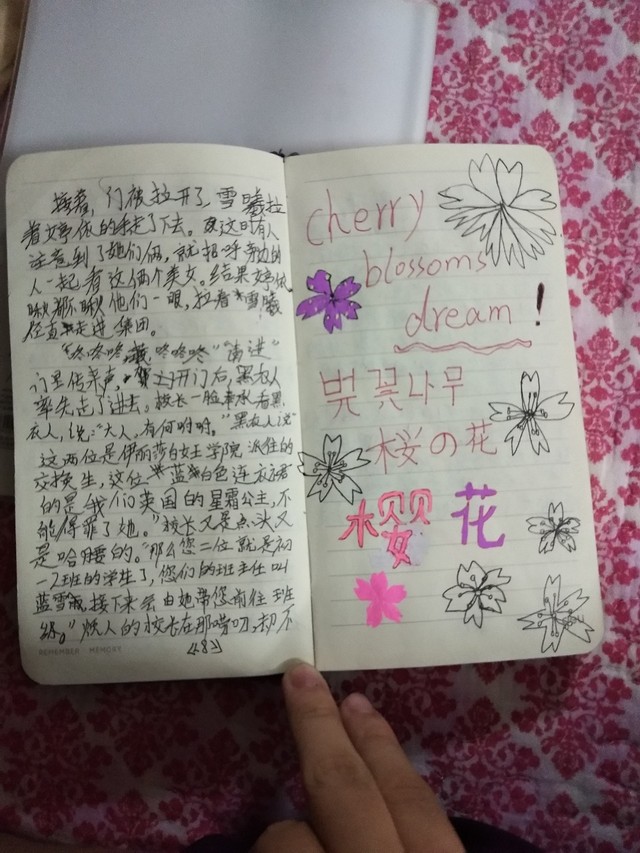 接着，门被拉开了，雪曦拉
着婷依的手走了下去。这时有人
注意到了她们俩，就招呼旁边的
人一起看这俩个美女。结果婷依
瞅都不瞅他们一眼，拉着雪曦
径直走进集团。
"咚咚咚 咚咚咚""请进"
门里传来声，打开门后，黑衣人
率先走了进去。校长一脸 看黑
衣人，说："大人，有何吩咐。"黑衣人说"
这两位是伊丽莎白女王学院派往的
交换生，这位蓝白色连衣裙
的是我们英国的星霜公主，不
能得罪了她。"校长又是点头又
是哈腰的。"那么您二位就是初
一2班的学生了，您们的班主任叫
蓝雪，接下来会由她带您前往班
级。" 人的校长在那唠叨，却不
REMEMBER MEMORY
《8》
cherry
blossoms
dream!
벚꽃나무
桜の花
樱花